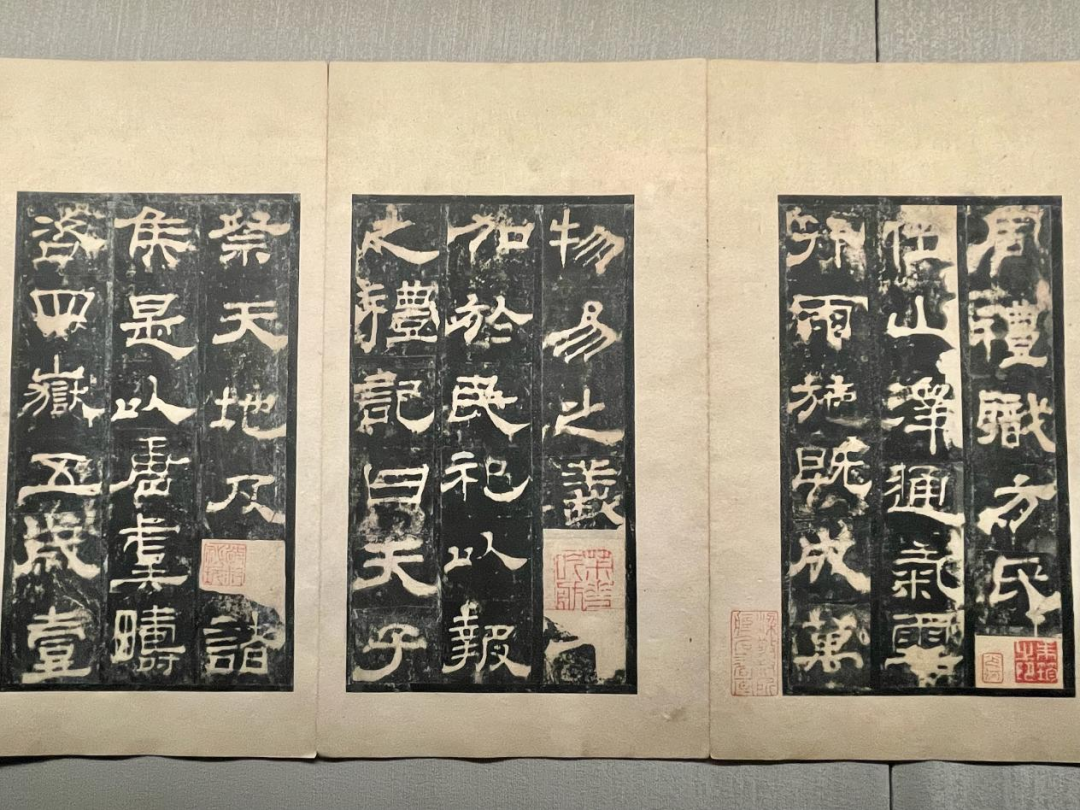 周禮職方氏
位山澤通氣雲
行雨施既成萬
物易之義
加於民祀以報
之禮記曰天子
祭天地及諸
侯是以唐虞疇
咨四嶽五歲壹